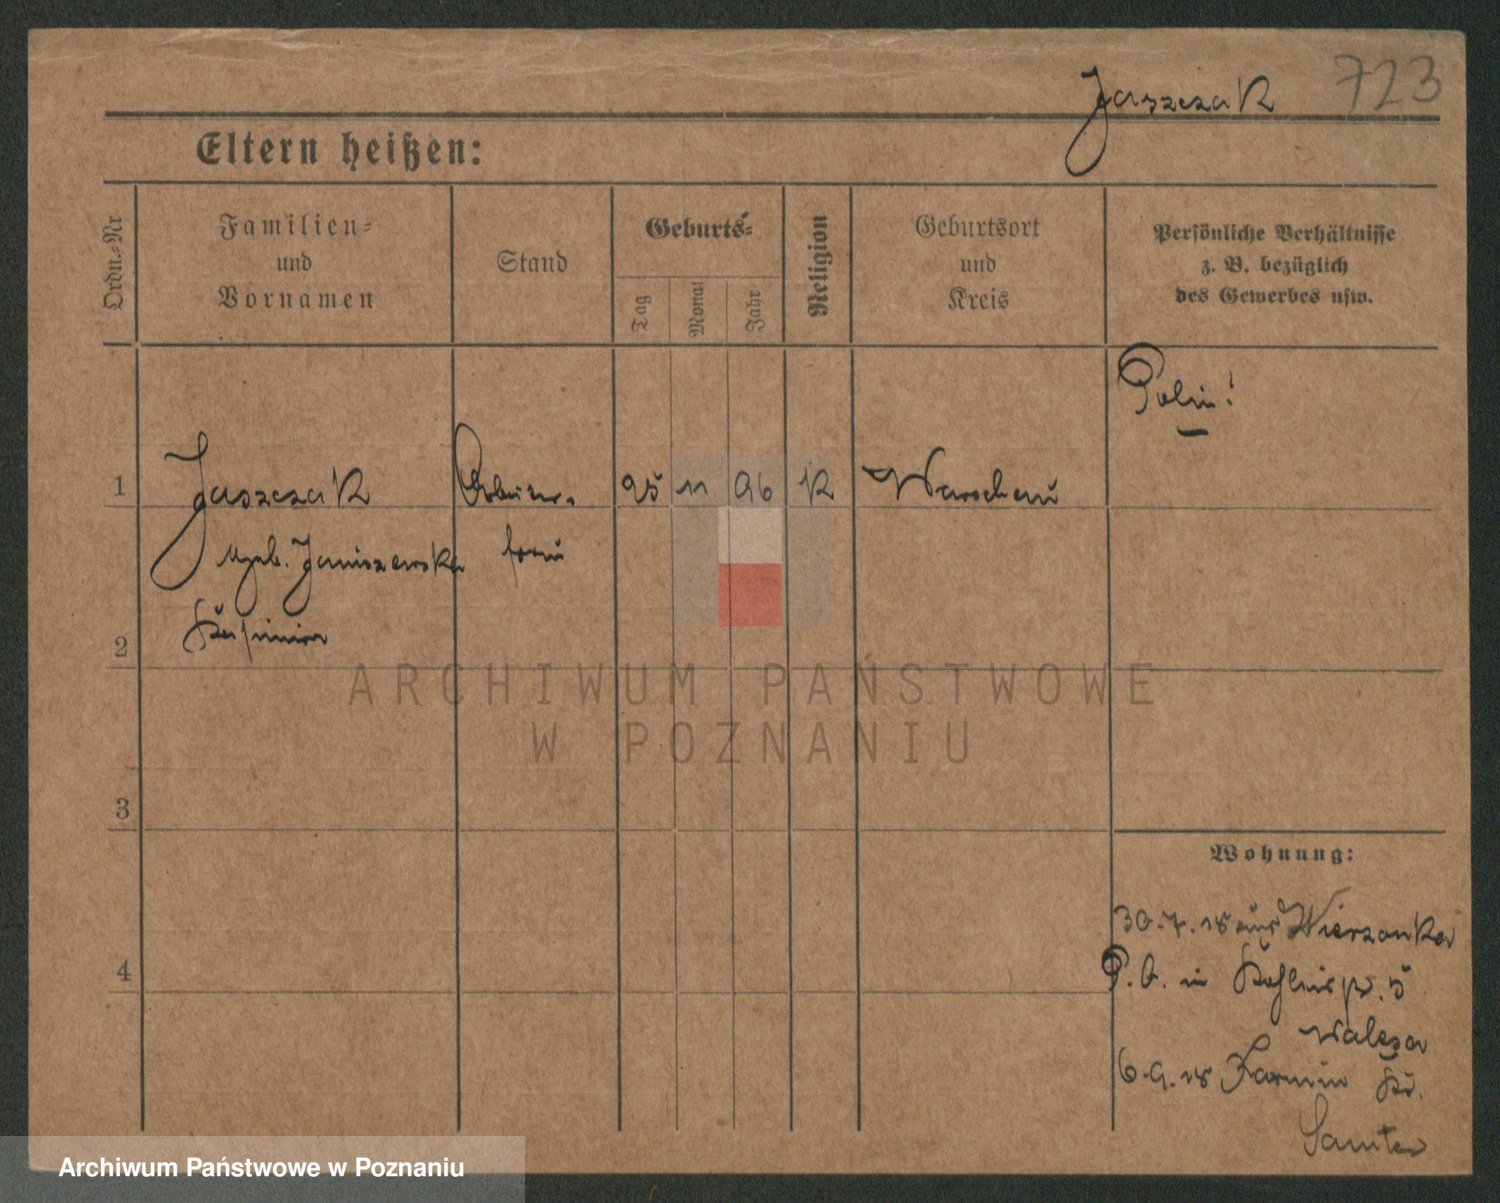 Jaszczak 723
Eltern heißen:
Ordn.-Nr
Familien-
und
Vornamen
Stand
Geburts-
Tag
Monat
Jahr
Religion
Geburtsort
und
Kreis
Persönliche Verhältnisse
z. B. bezüglich
des Gewerbes usw.
Polin!
1 Jaszczak Arbeiter- 25 11 96 K Warschau
geb. Janiszewska frau
2 Kasimira
ARCHIWUM PAŃSTWOWE
W POZNANIU
3
Wohnung:
30.7.18 aus Wierzonka
4 P. O. in 5
6.9.18 Kr.
Samter
Archiwum Państwowe w Poznaniu